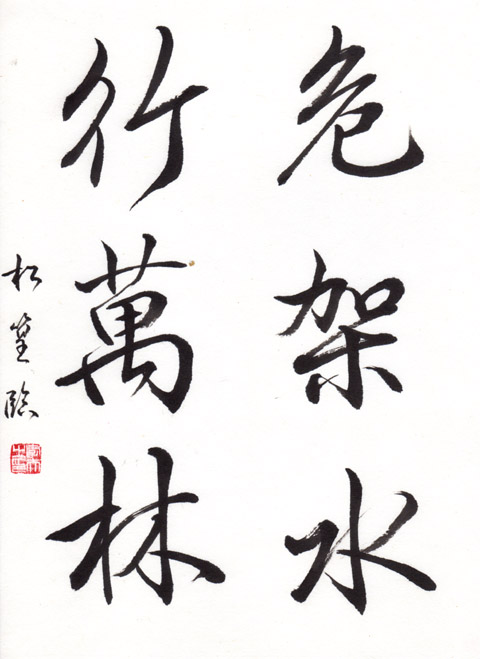 危架水
行萬林
松篁臨